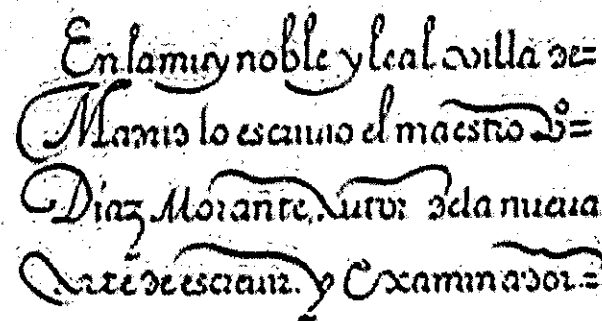 En la muy noble y leal villa de=
Madrid lo escriuio el maestro P.º=
Díaz Morante, Autor dela nueua
Arte de escreuir. y Examinador.=